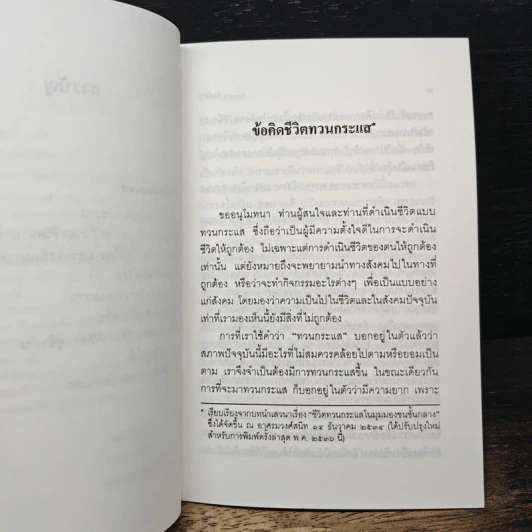 สารบัญ
ข้อคิดชีวิตทวนกระแส*
ขออนุโมทนา ท่านผู้สนใจและท่านที่ดำเนินชีวิตแบบ
ทวนกระแส ซึ่งถือว่าเป็นผู้มีความตั้งใจดีในการจะดำเนิน
ชีวิตให้ถูกต้อง ไม่เฉพาะแต่การดำเนินชีวิตของตนให้ถูกต้อง
เท่านั้น แต่ยังหมายถึงจะพยายามนำทางสังคมไปในทางที่
ถูกต้อง หรือว่าจะทำกิจกรรมอะไรต่างๆ เพื่อเป็นแบบอย่าง
แก่สังคม โดยมองว่าความเป็นไปในชีวิตและในสังคมปัจจุบัน
เท่าที่เรามองเห็นนี้ยังมีสิ่งที่ไม่ถูกต้อง
การที่เราใช้คำว่า “ทวนกระแส” บอกอยู่ในตัวแล้วว่า
สภาพปัจจุบันนี้มีอะไรที่ไม่สมควรคล้อยไปตามหรือยอมเป็น
ตาม เราจึงจำเป็นต้องมีการทวนกระแสขึ้น ในขณะเดียวกัน
การที่จะมาทวนกระแส ก็บอกอยู่ในตัวว่ามีความยาก เพราะ
* เรียบเรียงจากบทนำเสวนาเรื่อง “ชีวิตทวนกระแสในมุมมองชนชั้นกลาง”
ซึ่งได้จัดขึ้น ณ อาศรมวงศ์สนิท ๑๔ ธันวาคม ๒๕๓๔ (ได้ปรับปรุงใหม่
สำหรับการพิมพ์ครั้งล่าสุด พ.ค. ๒๕๓๖ นี้)